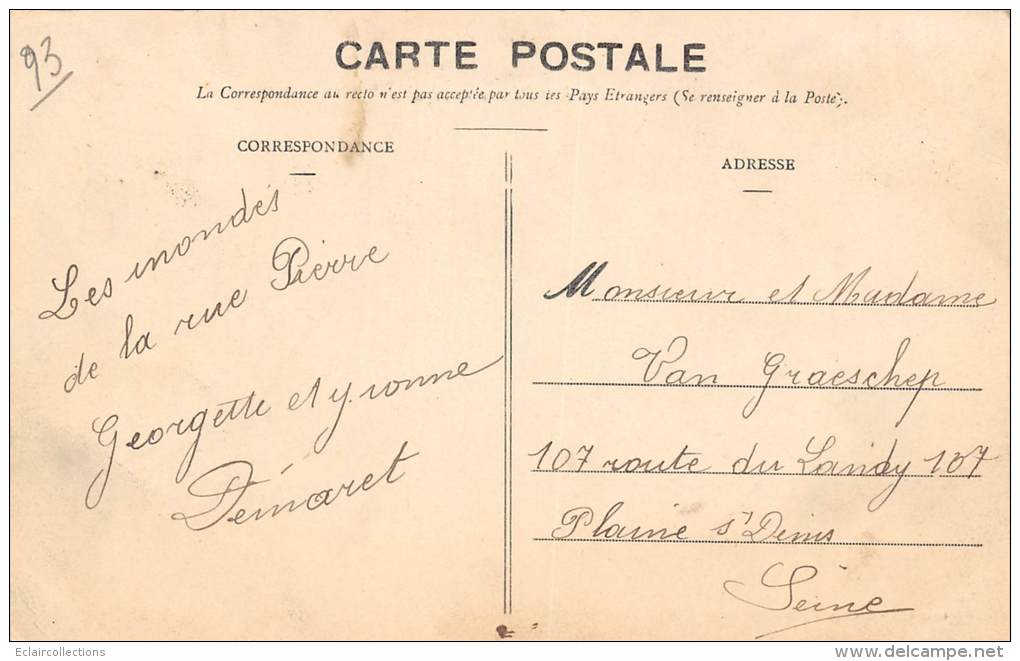 93
CARTE POSTALE
La Correspondance au recto n'est pas acceptée par tous les Pays Etrangers (Se renseigner à la Poste).
CORRESPONDANCE
Les inondés
de la rue Pierre
Georgette et Yvonne
Démaret
ADRESSE
Monsieur et Madame
Van Graeschep
107 route du Landy 107
Plaine St Denis
Seine
Eclaircollections
www.delcampe.net